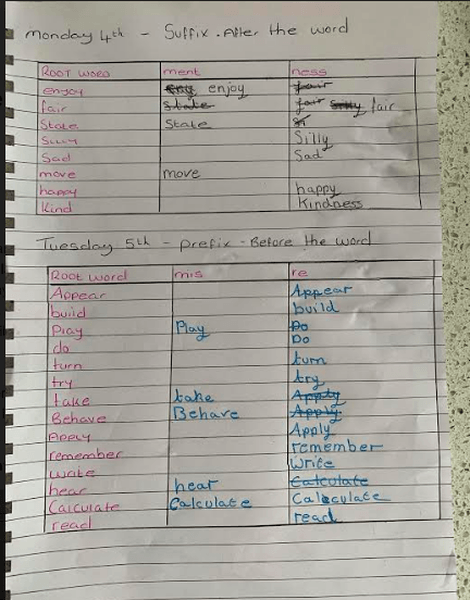 Monday 4th - Suffix. After the word
Root word ment ness
enjoy enjoy
fair State fair fair
State State
Silly Silly
Sad Sad
move move
happy happy
Kind Kindness
Tuesday 5th - prefix - Before the word
Root word mis re
Appear Appear
build build
Play Play Do
do Do
turn turn
try try
take take Apply
Behave Behave Apply
Apply Apply
remember remember
write Write
hear hear Calculate
Calculate Calculate Calculate
read read